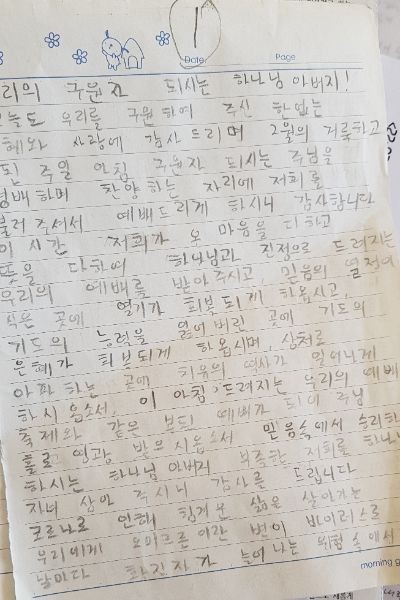 1
Date
Page
리의 구원자 되시는 하나님 아버지!
늘도 우리를 구원하여 주신 한없는
혜와 사랑에 감사 드리며 2월의 거룩하고
된 주일 아침 구원자 되시는 주님을
경배하며 찬양하는 자리에 저희를
불러 주셔서 예배드리게 하시니 감사합니다
이 시간 저희가 온 마음을 다하고
뜻을 다하여 하나님과 진정으로 드려지는
우리의 예배를 받아 주시고, 믿음의 열정이
식은 곳에 열기가 회복되게 하옵시고,
기도의 능력을 잃어버린 곳에 기도의
은혜가 회복되게 하옵시며, 상처로
아파하는 곳에 치유의 역사가 일어나게
하시옵소서, 이 아침 드려지는 우리의 예배
축제와 같은 복된 예배가 되어 주님
홀로 영광 받으시옵소서 믿음속에서 승리하
하시는 하나님 아버지 부족한 저희를 하나
자녀 삼아 주시니 감사를 드립니다
코로나로 인해 힘겨운 삶을 살아가는
우리에게 오미크론이란 변이 바이러스로
날마다 확진자가 늘어나는 위험속에서
morning g